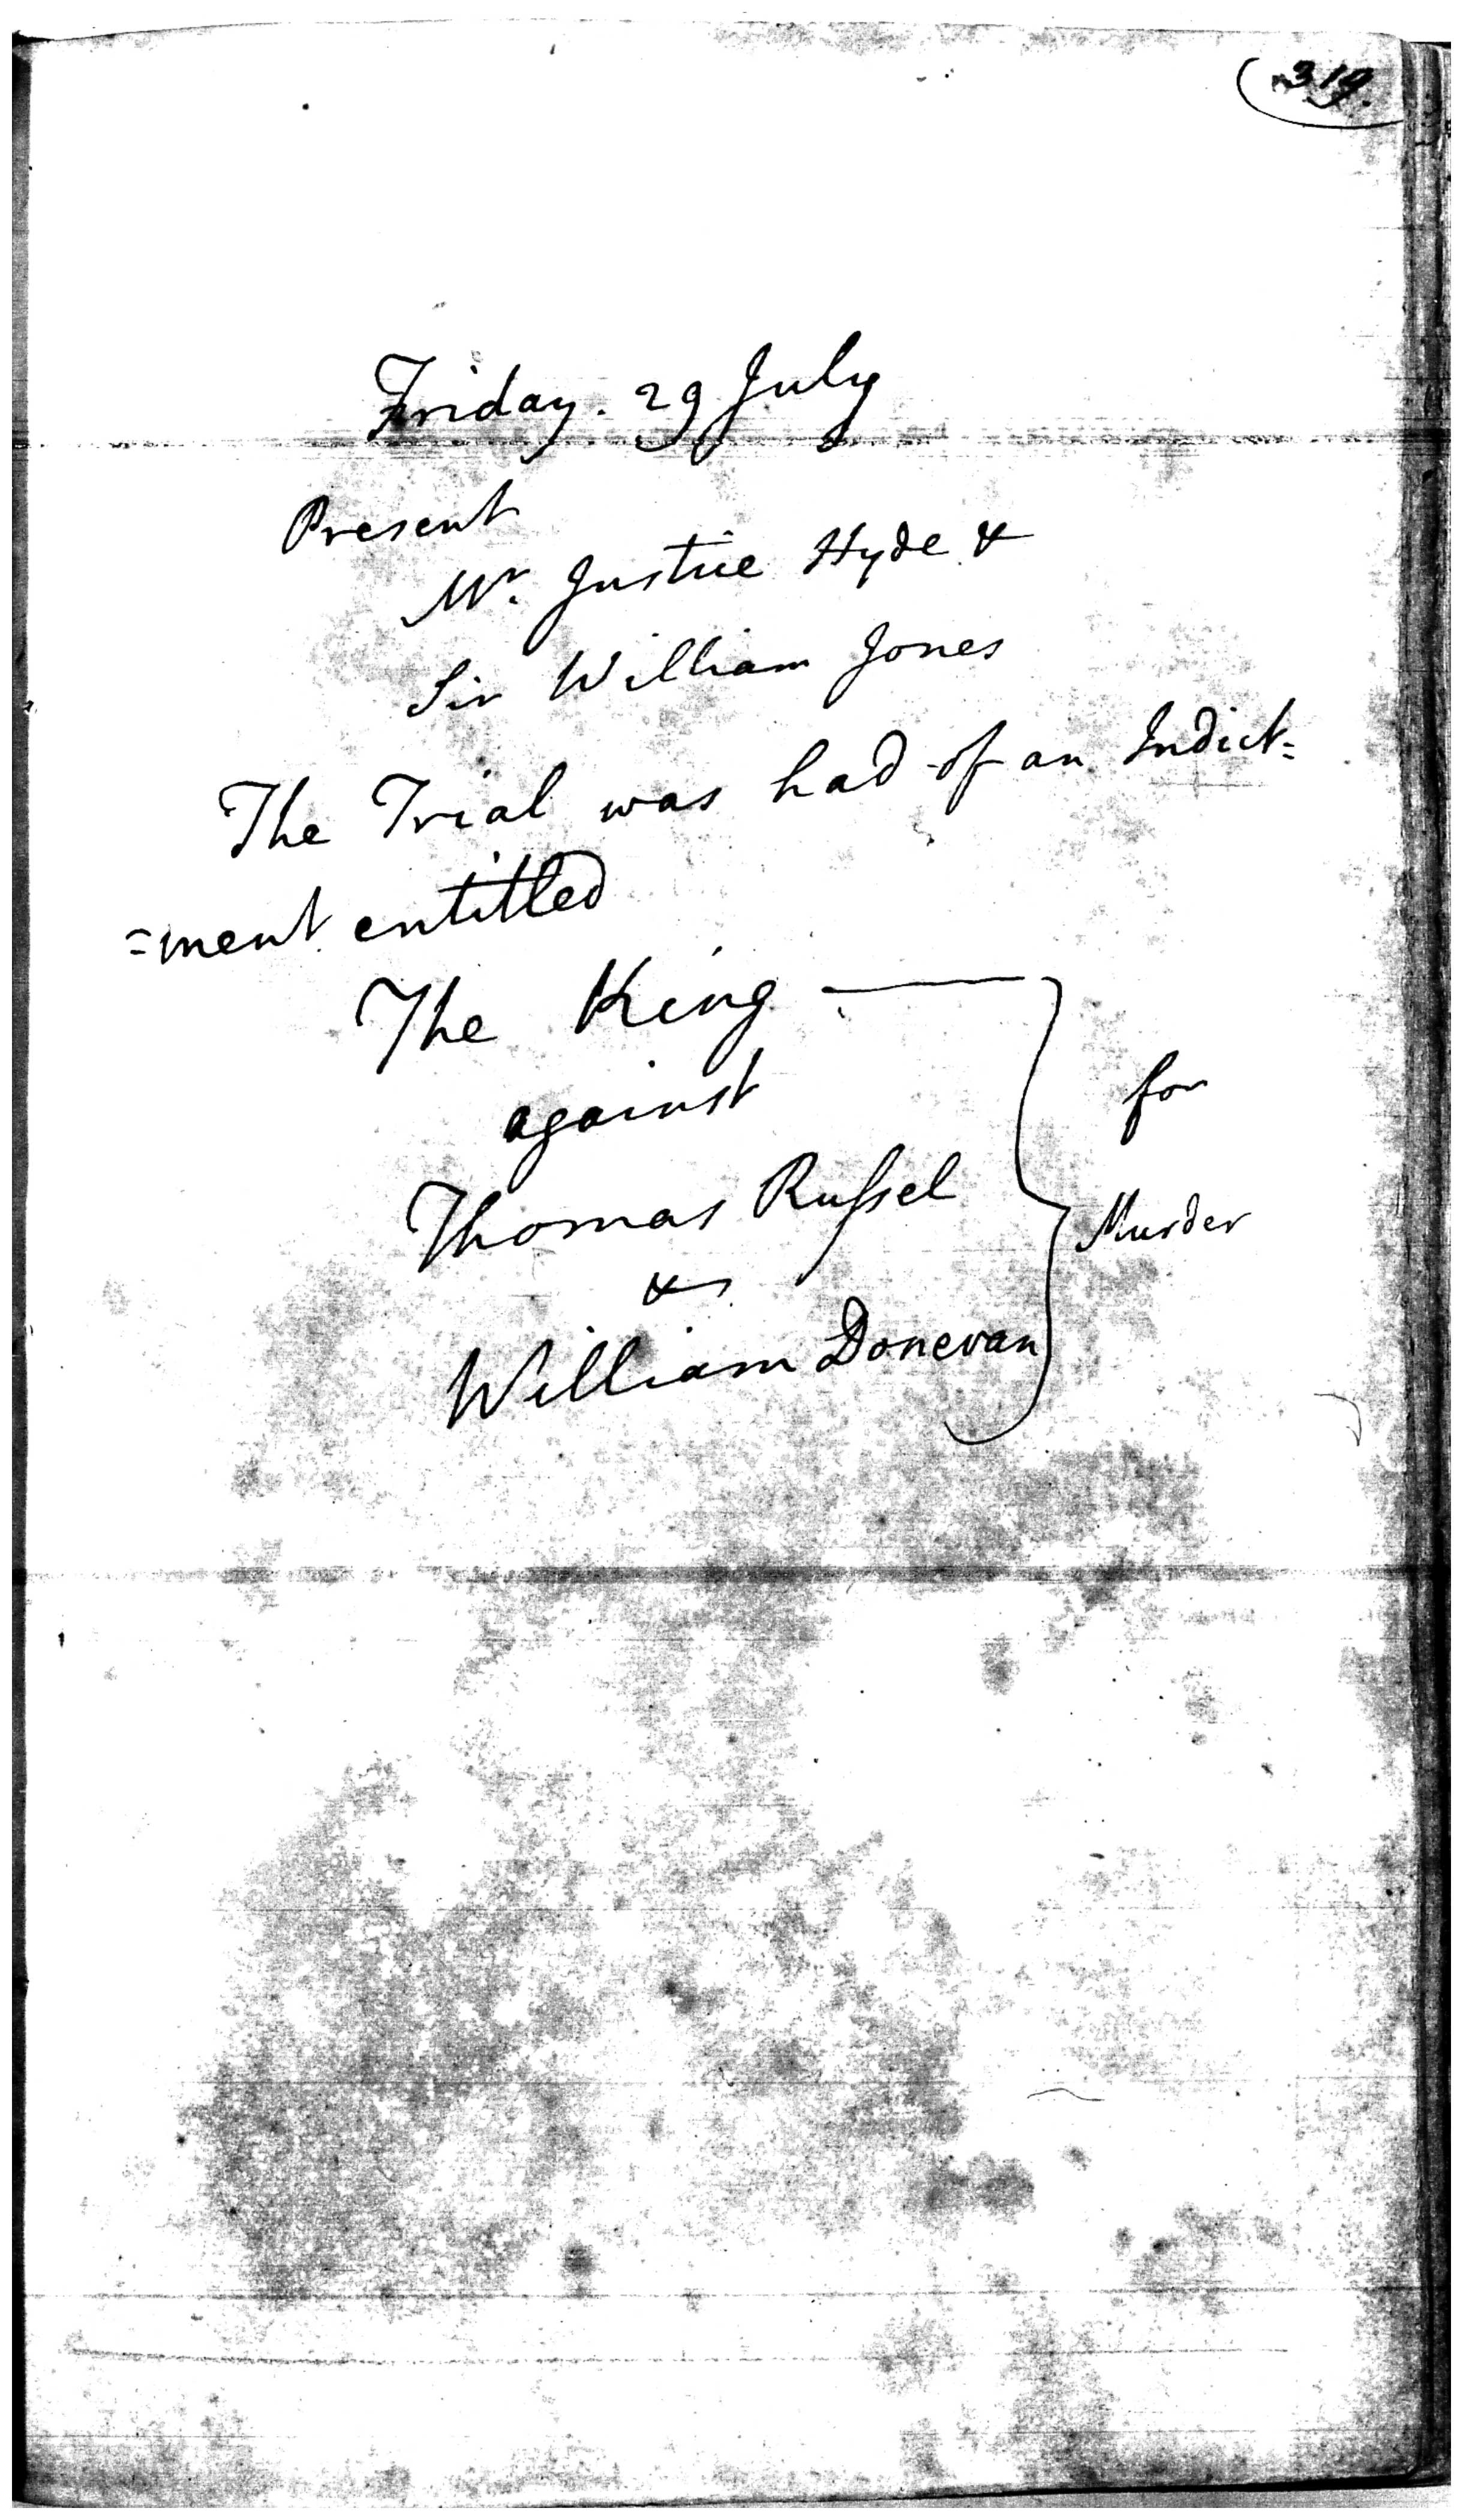 319.
Friday. 29 July
Present
Mr. Justice Hyde &
Sir William Jones
The Trial was had of an Indict=
=ment entitled
The King —
against
for
Thomas Rufsel
Murder
&
William Donevan